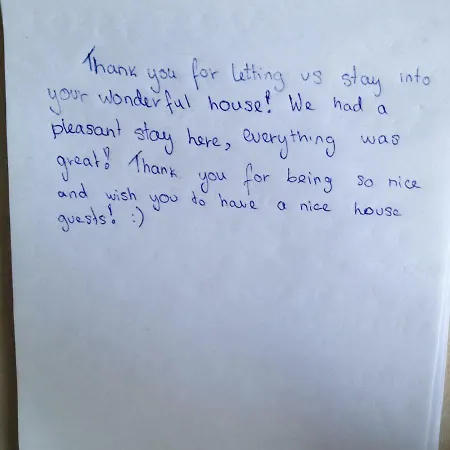 Thank you for letting us stay into
your wonderful house! We had a
pleasant stay here, everything was
great! Thank you for being so nice
and wish you to have a nice house
guests! :)